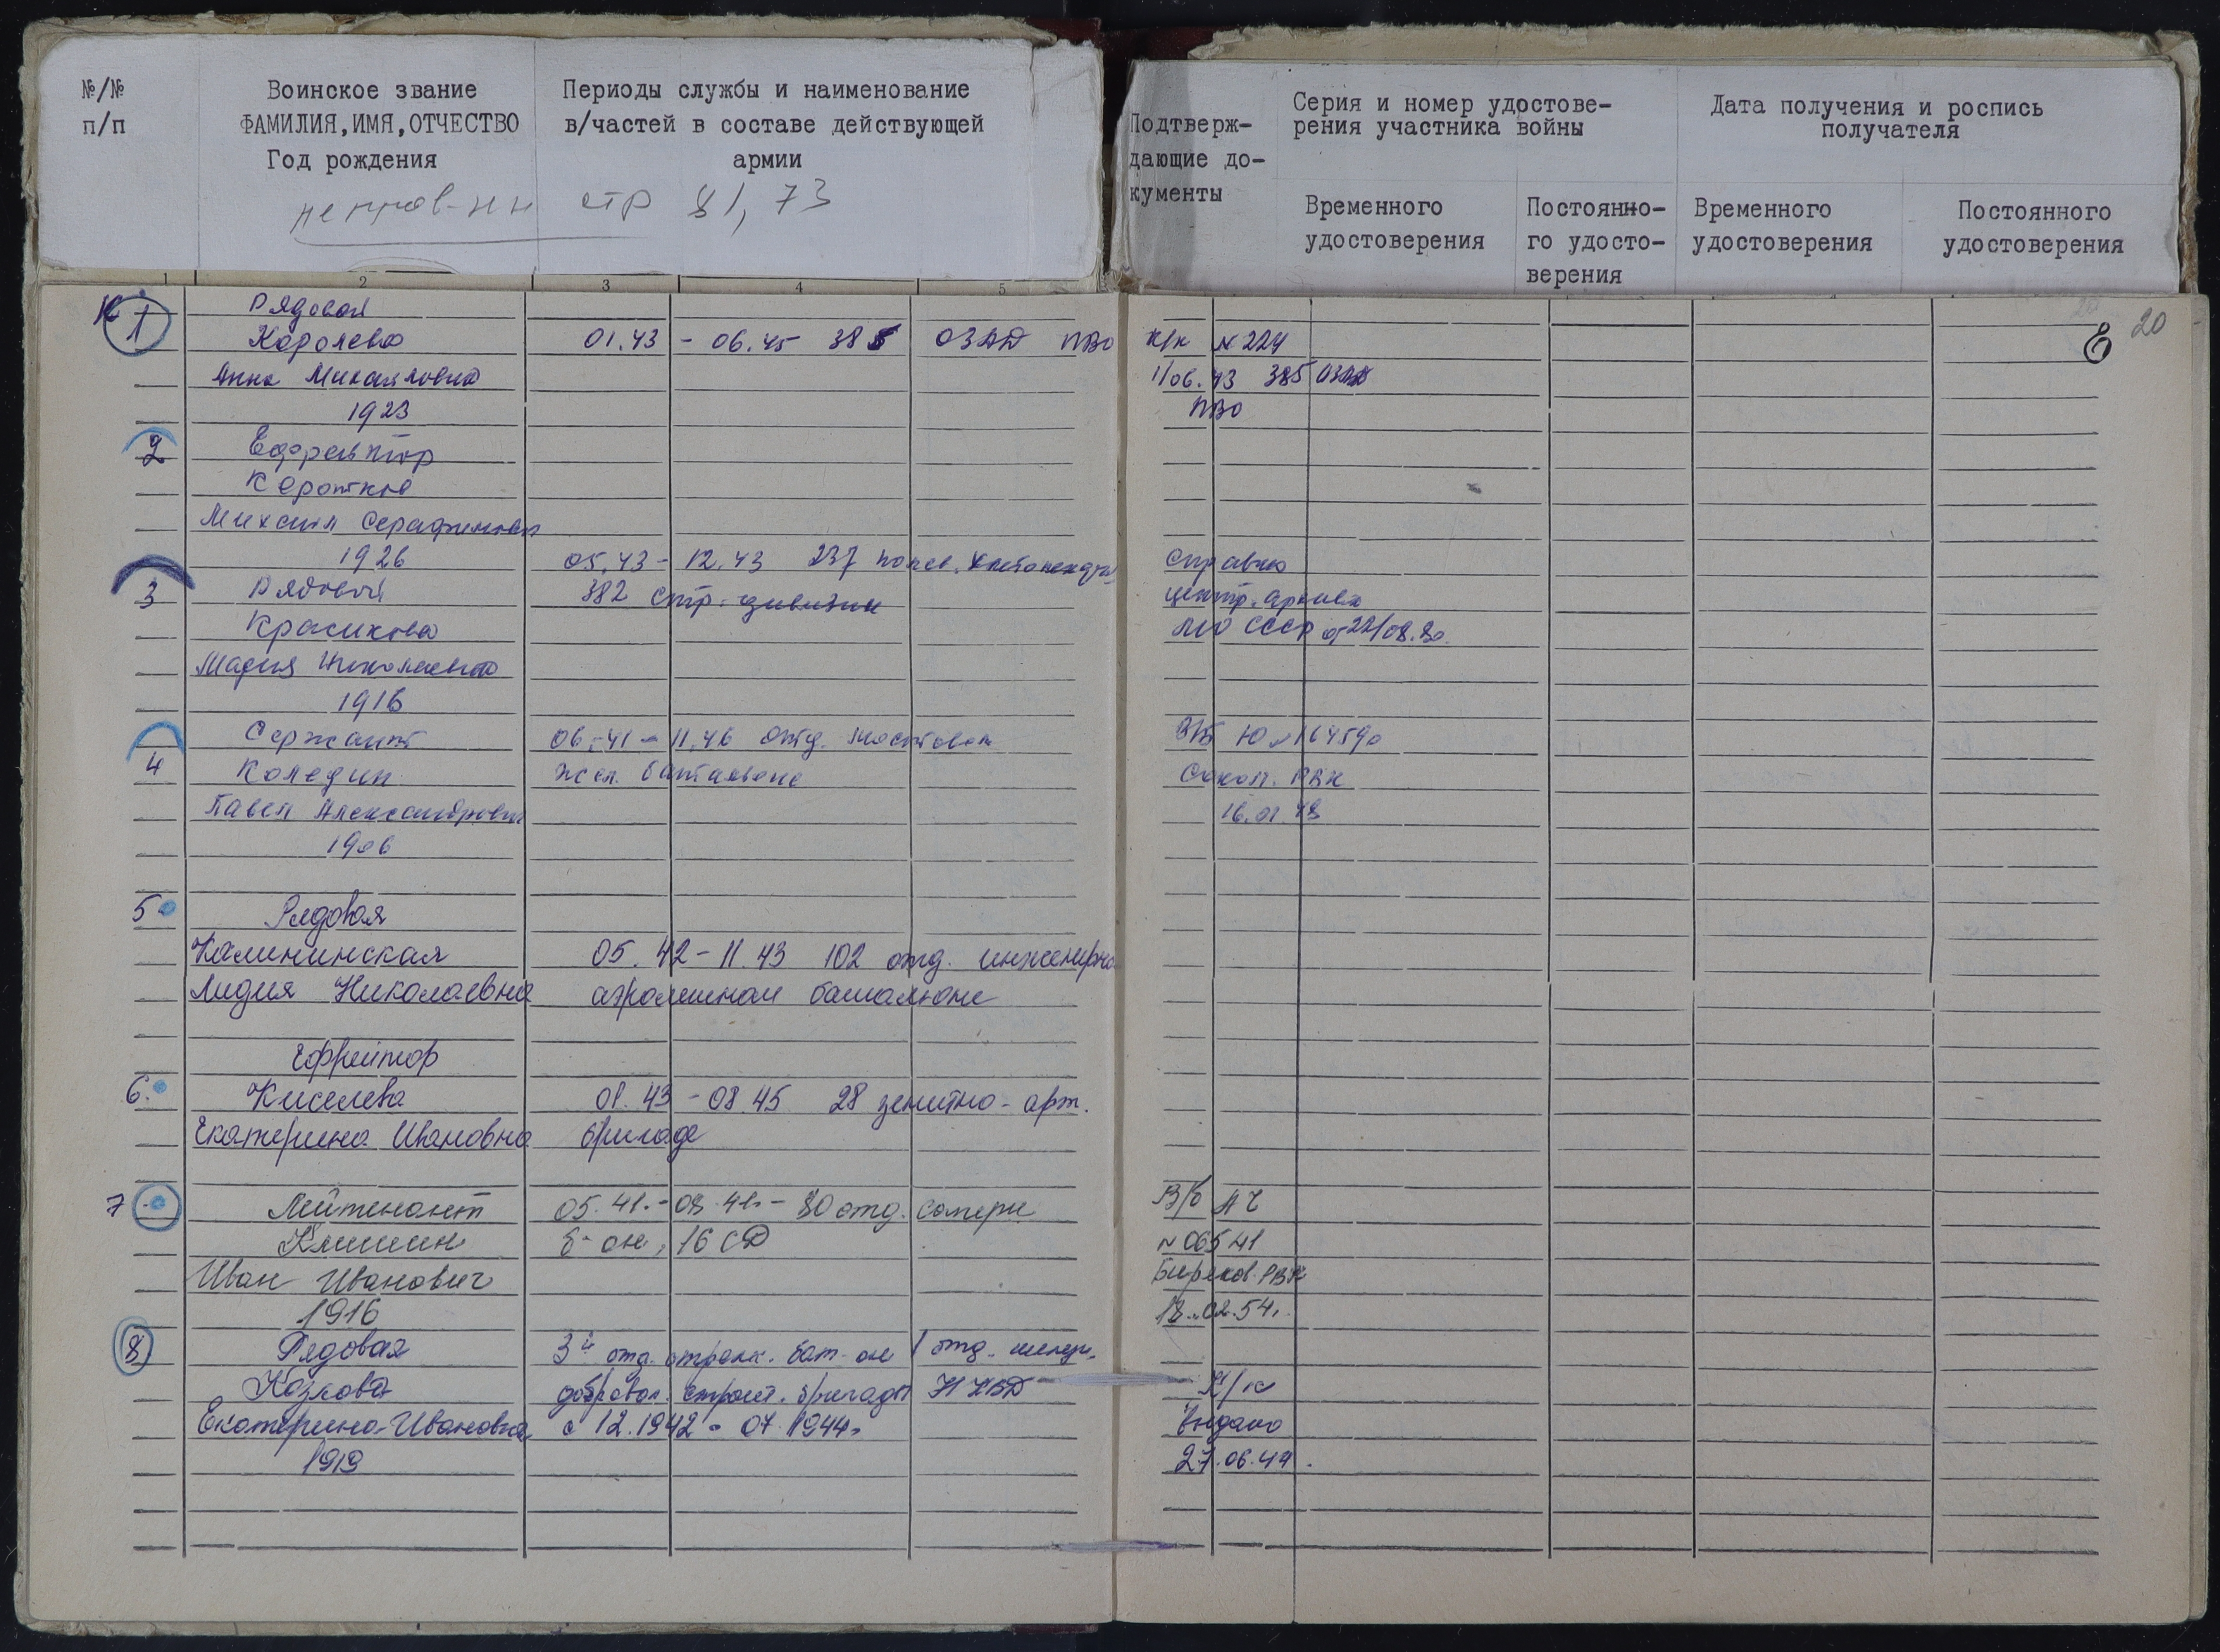 №/№
п/п
Воинское звание
ФАМИЛИЯ, ИМЯ, ОТЧЕСТВО
Год рождения
Периоды службы и наименование
в/частей в составе действующей
армии
стр 81, 73
Подтверж-
дающие до-
кументы
Серия и номер удостове-
рения участника войны
Дата получения и роспись
получателя
Временного
удостоверения
Постоянно-
го удосто-
верения
Временного
удостоверения
Постоянного
удостоверения
1 2 3 4 5
20
К 1 Рядовая
Королева 01.43 - 06.45 385 ОЗАД ПВО К/к № 224
Анна Михайловна 1/06.43 385 ОЗАД
1923 ПВО
2 Ефрейтор
Коротков
Михаил Серафимович
1926 05.43 - 12.43 237 полев. хлебопекарн Справка
3 Рядовой 382 стр. дивизии центр. архива
Красикова МО СССР от 22/08.80
Мария Николаевна
1916
Сержант 06.41 - 11.46 отд. мостовом В/Б Ю № 164590
4 Коледин жел. батальоне Сокол. РВК
Павел Александрович 16.01.48
1906
5 Рядовая
Калининская 05.42 - 11.43 102 отд. инженерно
Лидия Николаевна аэродромном батальоне
Ефрейтор
6. Киселева 08.43 - 08.45 28 зенитно-арт.
Екатерина Ивановна бригаде
7 Лейтенант 05.41. - 08.41. - 80 отд. саперн В/б АЧ
Клишин б-он, 16 СД № 06541
Иван Иванович Биряков. РВК
1916 18.02.54.
8 Рядовая 3й отд. строит. бат-он 1 отд.
Козлова добровол. строит. бригады НКВД К/к
Екатерина Ивановна с 12.1942 - 07.1944 выдано
1919 27.06.44.